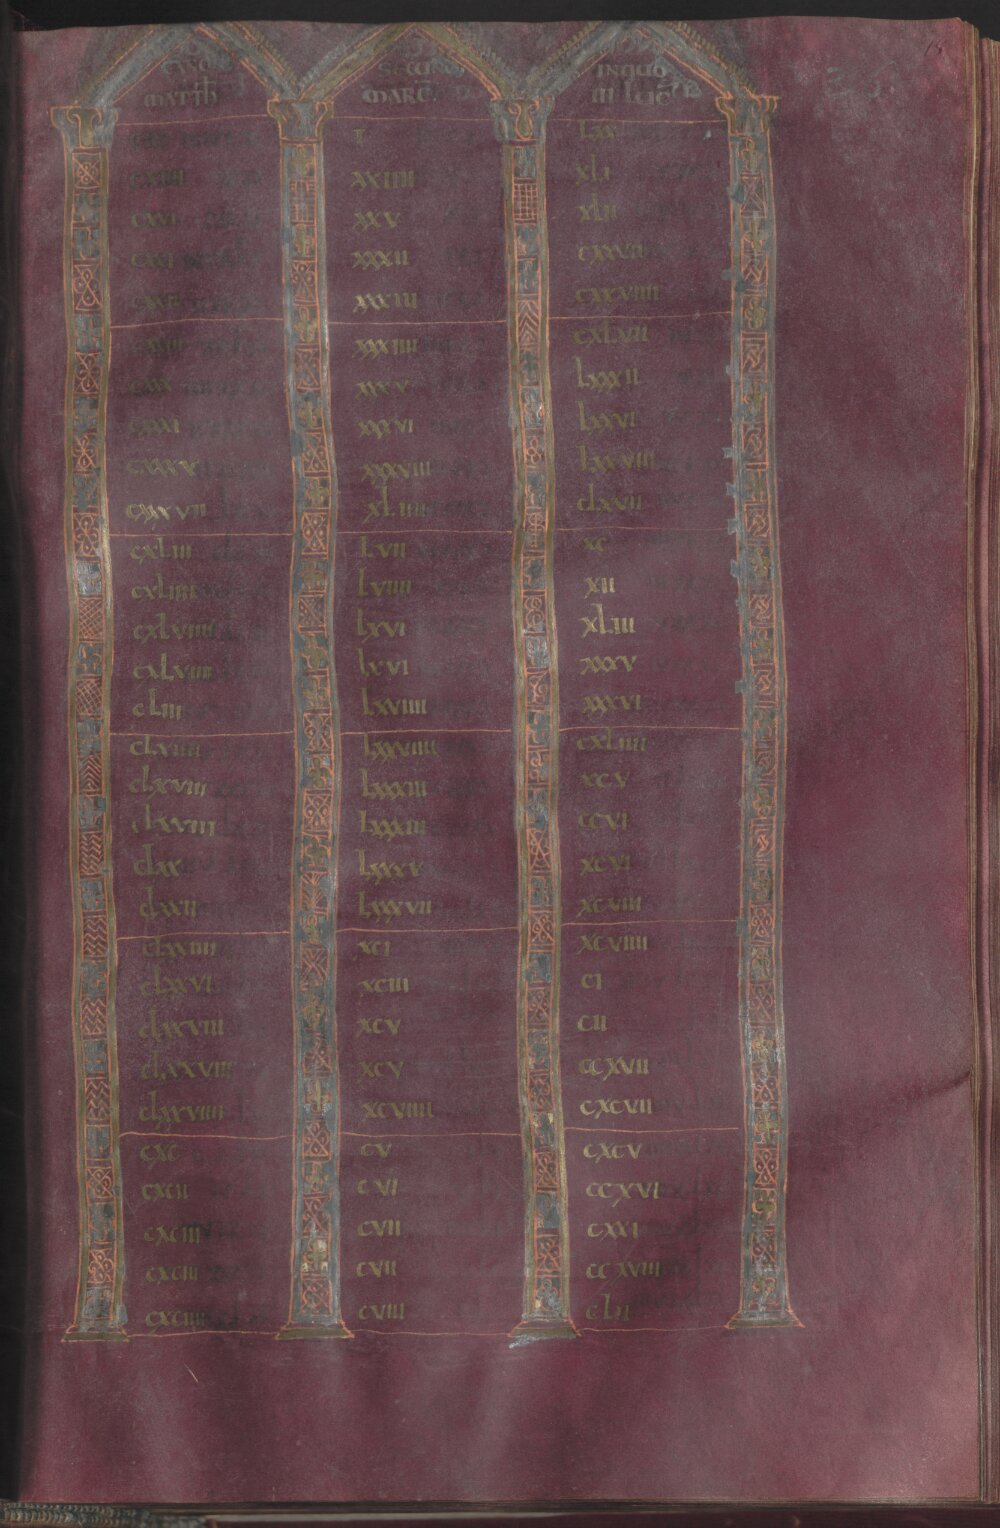 MATTH MARC III LUC
I LXX
CXIIII XXIIII XLI
CXVI XXV XLII
CXVI XXXII CXXVII
XXXIII CXXVIIII
XXXIIII CXLVII
CXXX XXXV LXXXII
CXXXI XXXVI LXXVI
CXXXV XXXVIII LXXVIII
CXXXVII XLIIII CLXVII
CXLIII LVII XC
CXLIIII LVIIII XII
CXLVIIII LXVI XLIII
CXLVIIII LXVI XXXV
CLIII LXVIIII XXXVI
LXXVIIII CXLIIII
CLXVIII LXXXIII XCV
CLXVIII LXXXIII CCVI
CLXX LXXXV XCVI
CLXXII LXXXVII XCVIII
CLXXIIII XCI XCVIIII
CLXXVI XCIII CI
CLXXVIII XCV CII
CLXXVIII XCV CCXVII
CLXXVIIII XCVIIII CXCVII
CXC CV CXCV
CXCII CVI CCXVI
CXCIII CVII CXXI
CXCIII CVII CCXVIII
CXCIIII CVIII CLII